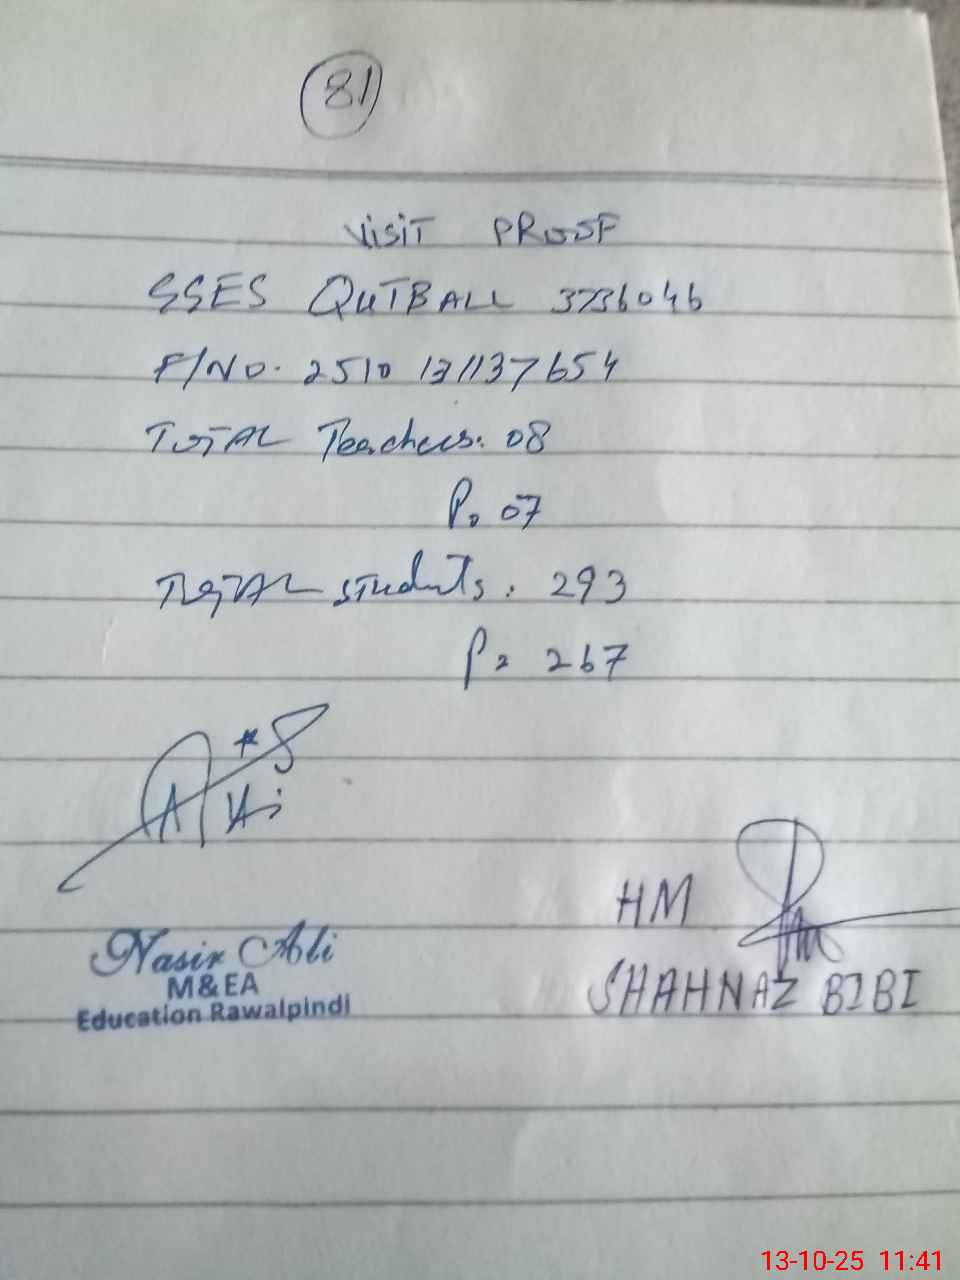 81
VISIT PROOF
SSES QUTBALL 3736046
F/NO. 2510131137654
TOTAL Teachers: 08
P. 07
TOTAL students: 293
P= 267
Nasir Ali
M&EA
Education Rawalpindi
HM
SHAHNAZ BIBI
13-10-25 11:41